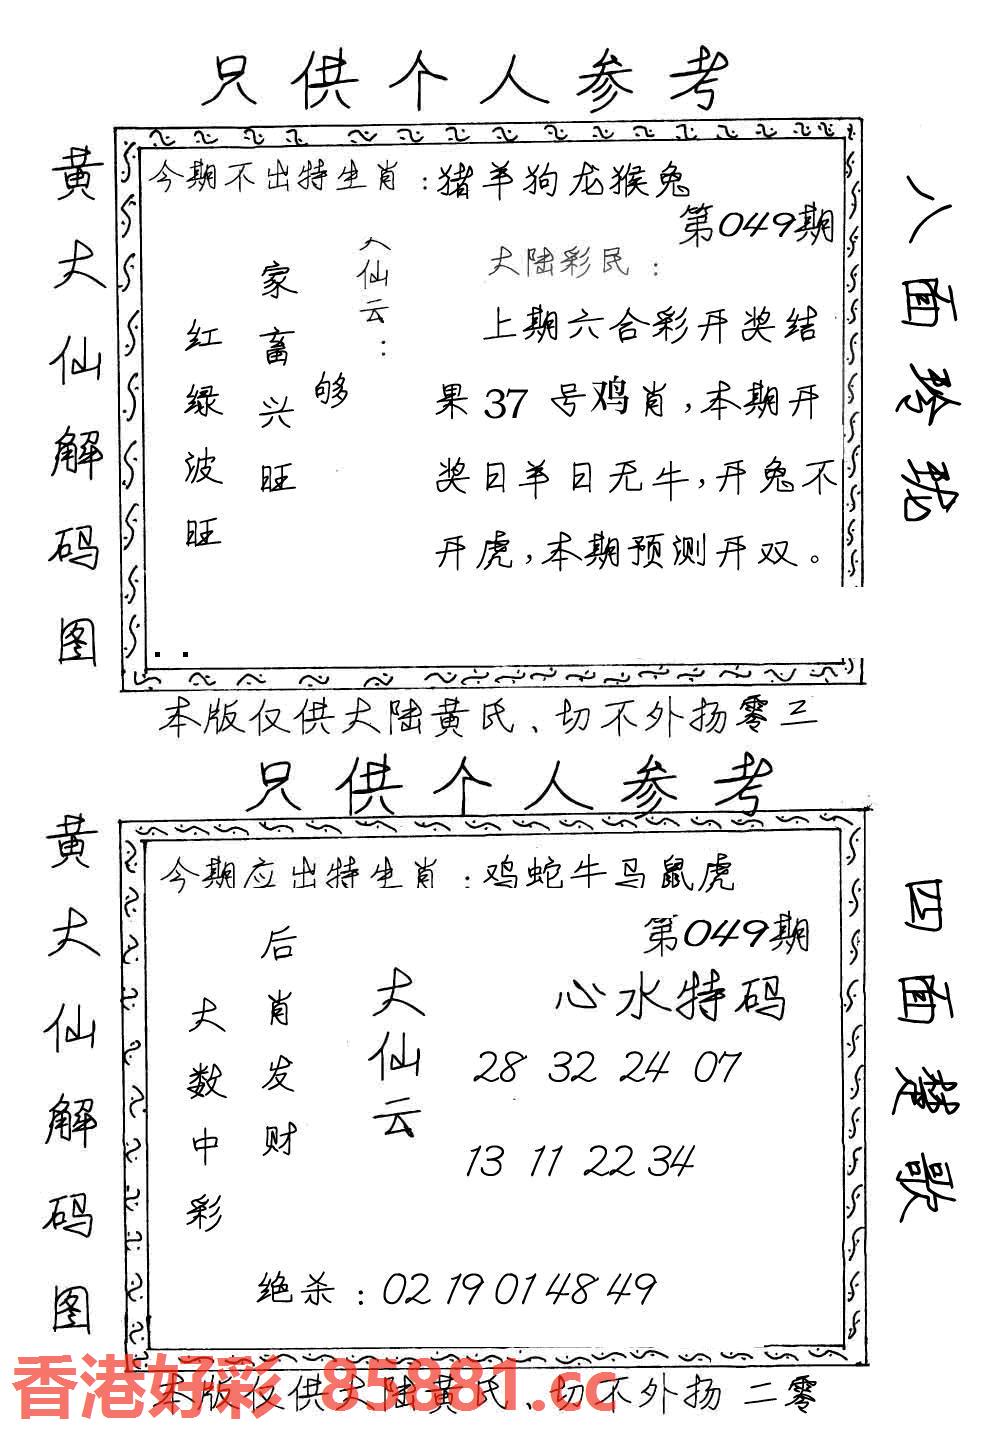 只供个人参考
黄大仙解码图
今期不出特生肖：猪羊狗龙猴兔
第049期
八面玲珑
大仙云：
家畜兴旺
够
红绿波旺
大陆彩民：
上期六合彩开奖结
果37号鸡肖，本期开
奖日羊日无牛，开兔不
开虎，本期预测开双。
本版仅供大陆黄氏、切不外扬零三
只供个人参考
黄大仙解码图
今期应出特生肖：鸡蛇牛马鼠虎
第049期
四面楚歌
大仙云
后肖发财
大数中彩
心水特码
28 32 24 07
13 11 22 34
绝杀：02 19 01 48 49
香港好彩 85881.cc
本版仅供大陆黄氏、切不外扬二零